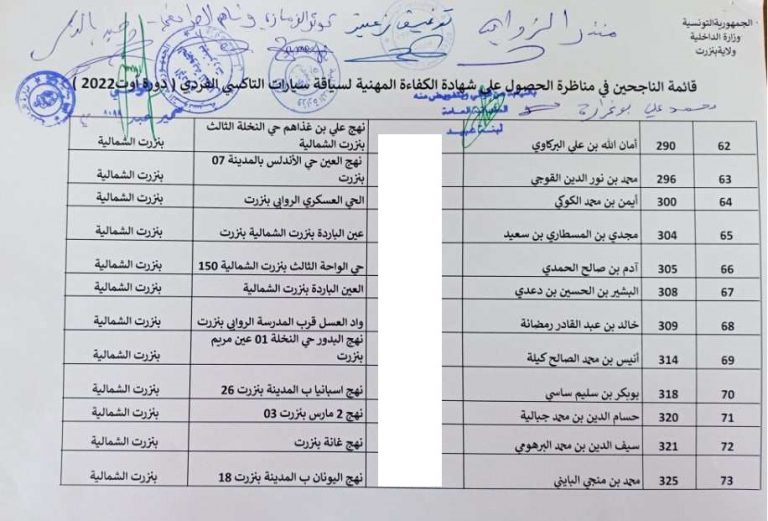 الجمهورية التونسية
وزارة الداخلية
ولاية بنزرت
قائمة الناجحين في مناظرة الحصول على شهادة الكفاءة المهنية لسياقة سيارات التاكسي الفردي ( دورة أوت2022 )
62 290 أمان الله بن علي البركاوي نهج علي بن غذاهم حي النخلة الثالث بنزرت الشمالية بنزرت الشمالية
63 296 محمد بن نور الدين القوجي نهج العين حي الأندلس بالمدينة 07 بنزرت بنزرت الشمالية
64 300 أيمن بن محمد الكوكي الحي العسكري الروابي بنزرت بنزرت الشمالية
65 304 مجدي بن المسطاري بن سعيد عين الباردة بنزرت الشمالية بنزرت بنزرت الشمالية
66 305 آدم بن صالح الحمدي حي الواحة الثالث بنزرت الشمالية 150 بنزرت الشمالية
67 308 البشير بن الحسين بن دعدي العين الباردة بنزرت الشمالية بنزرت الشمالية
68 309 خالد بن عبد القادر رمضانة واد العسل قرب المدرسة الروابي بنزرت بنزرت الشمالية
69 314 أنيس بن محمد الصالح كيلة نهج البدور حي النخلة 01 عين مريم بنزرت بنزرت الشمالية
70 318 بوبكر بن سليم ساسي نهج اسبانيا ب المدينة بنزرت 26 بنزرت الشمالية
71 320 حسام الدين بن محمد جبالية نهج 2 مارس بنزرت 03 بنزرت الشمالية
72 321 سيف الدين بن محمد البرهومي نهج غانة بنزرت بنزرت الشمالية
73 325 محمد بن منجي البايني نهج اليونان ب المدينة بنزرت 18 بنزرت الشمالية